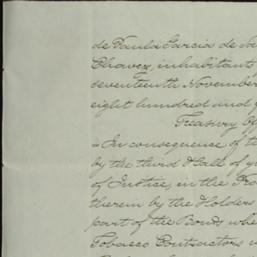 de Paula Garcia de
Chavez, inhabitant
seventeenth November
eight hundred and
Treasury
In consequence of
by the third Hall of
of Justice, in the
therein by the Holders
part of the Bonds
Tobacco Contractors